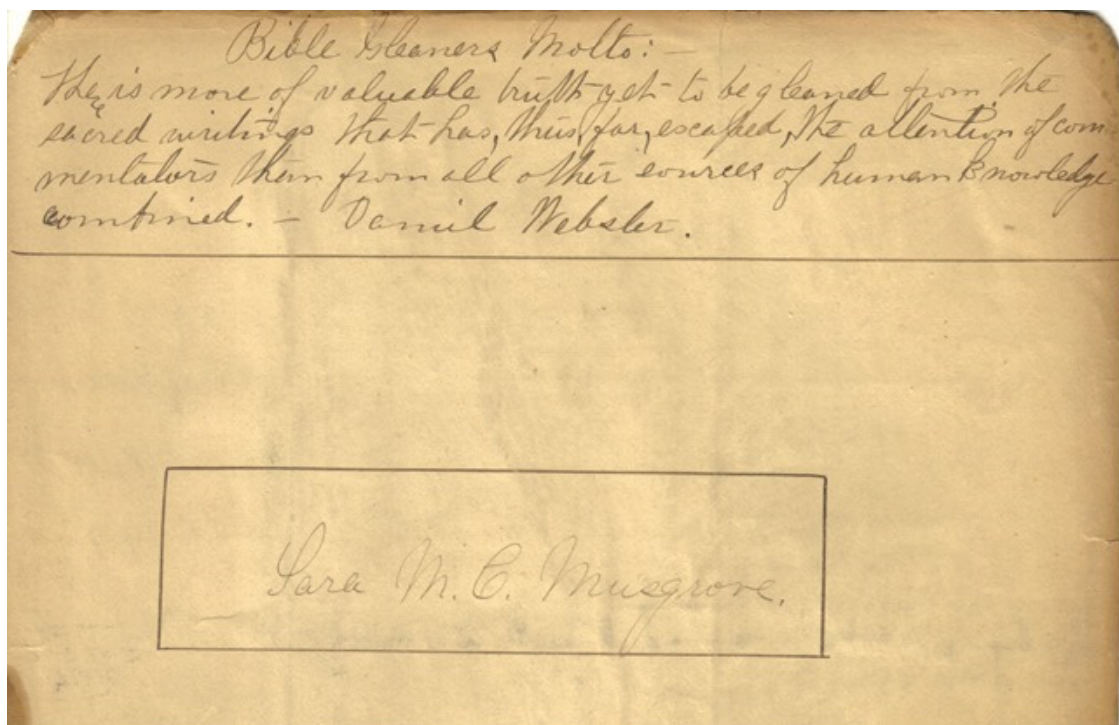 Bible Gleaners Motto: —
The is more of valuable truth yet to be gleaned from the
sacred writings that has, thus, far, escaped, the attention of com
mentators than from all other sources of human knowledge
combined. — Daniel Webster.
Sara M. C. Musgrove.